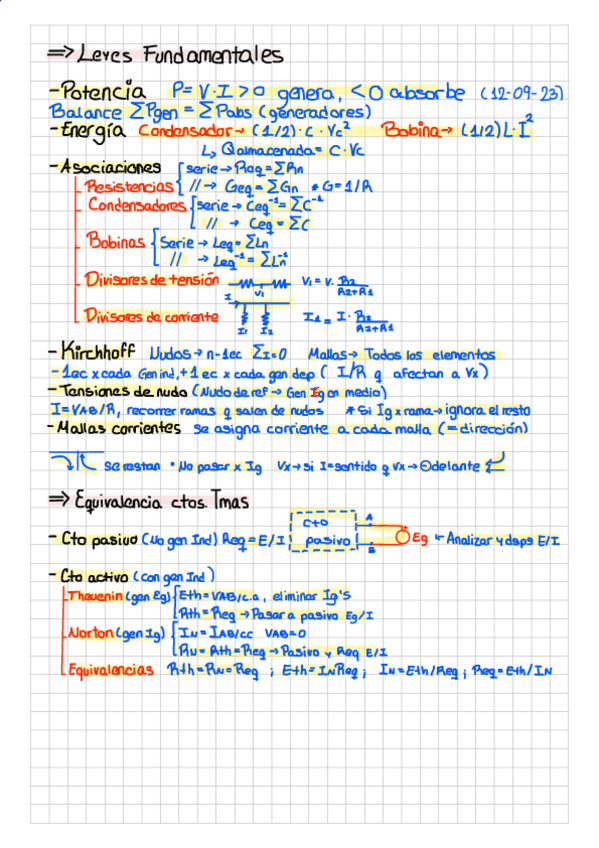 => Leyes Fundamentales
- Potencia P= V·I > 0 genera, < 0 absorbe (12-09-23)
Balance ΣPgen = ΣPabs (generadores)
- Energía Condensador→ (1/2)·C·Vc² Bobina→ (1/2)L·I²
↳ Qalmacenada= C·Vc
- Asociaciones { serie→ Req=ΣRn
Resistencias { //→ Geq=ΣGn * G=1/R
Condensadores { serie→ Ceq⁻¹=ΣC⁻¹
// → Ceq=ΣC
Bobinas { Serie→ Leq=ΣLn
// → Leq⁻¹=ΣLn⁻¹
Divisores de tensión V1 V1=V·R2/(R2+R1)
Divisores de corriente I I1 I2 I1= I·R2/(R2+R1)
- Kirchhoff Nudos→n-1ec ΣI=0 Mallas→ Todos los elementos
- 1ec x cada Gen ind,+1 ec x cada gen dep ( I/R q afectan a Vx)
- Tensiones de nudo (Nudo de ref→ Gen Eg en medio)
I=VAB/R, recorrer ramas q salen de nudos * Si Ig x rama→ignora el resto
- Mallas corrientes se asigna corriente a cada malla (= dirección)
se restan * No pasar x Ig Vx→ si I=sentido q Vx→ ⊖delante
=> Equivalencia ctos. Tmas
- Cto pasivo (No gen Ind) Req=E/I cto pasivo A B Eg ← Analizar y dsps E/I
- Cto activo (con gen Ind)
Thevenin (gen Eg) { Eth=VAB/c.a, eliminar Ig's
Rth=Req→Pasar a pasivo Eg/I
Norton (gen Ig) { IN=IAB/cc VAB=0
RN=Rth=Req→Pasivo y Req E/I
Equivalencias Rth=RN=Req ; Eth=INReq ; IN=Eth/Req ; Req=Eth/IN